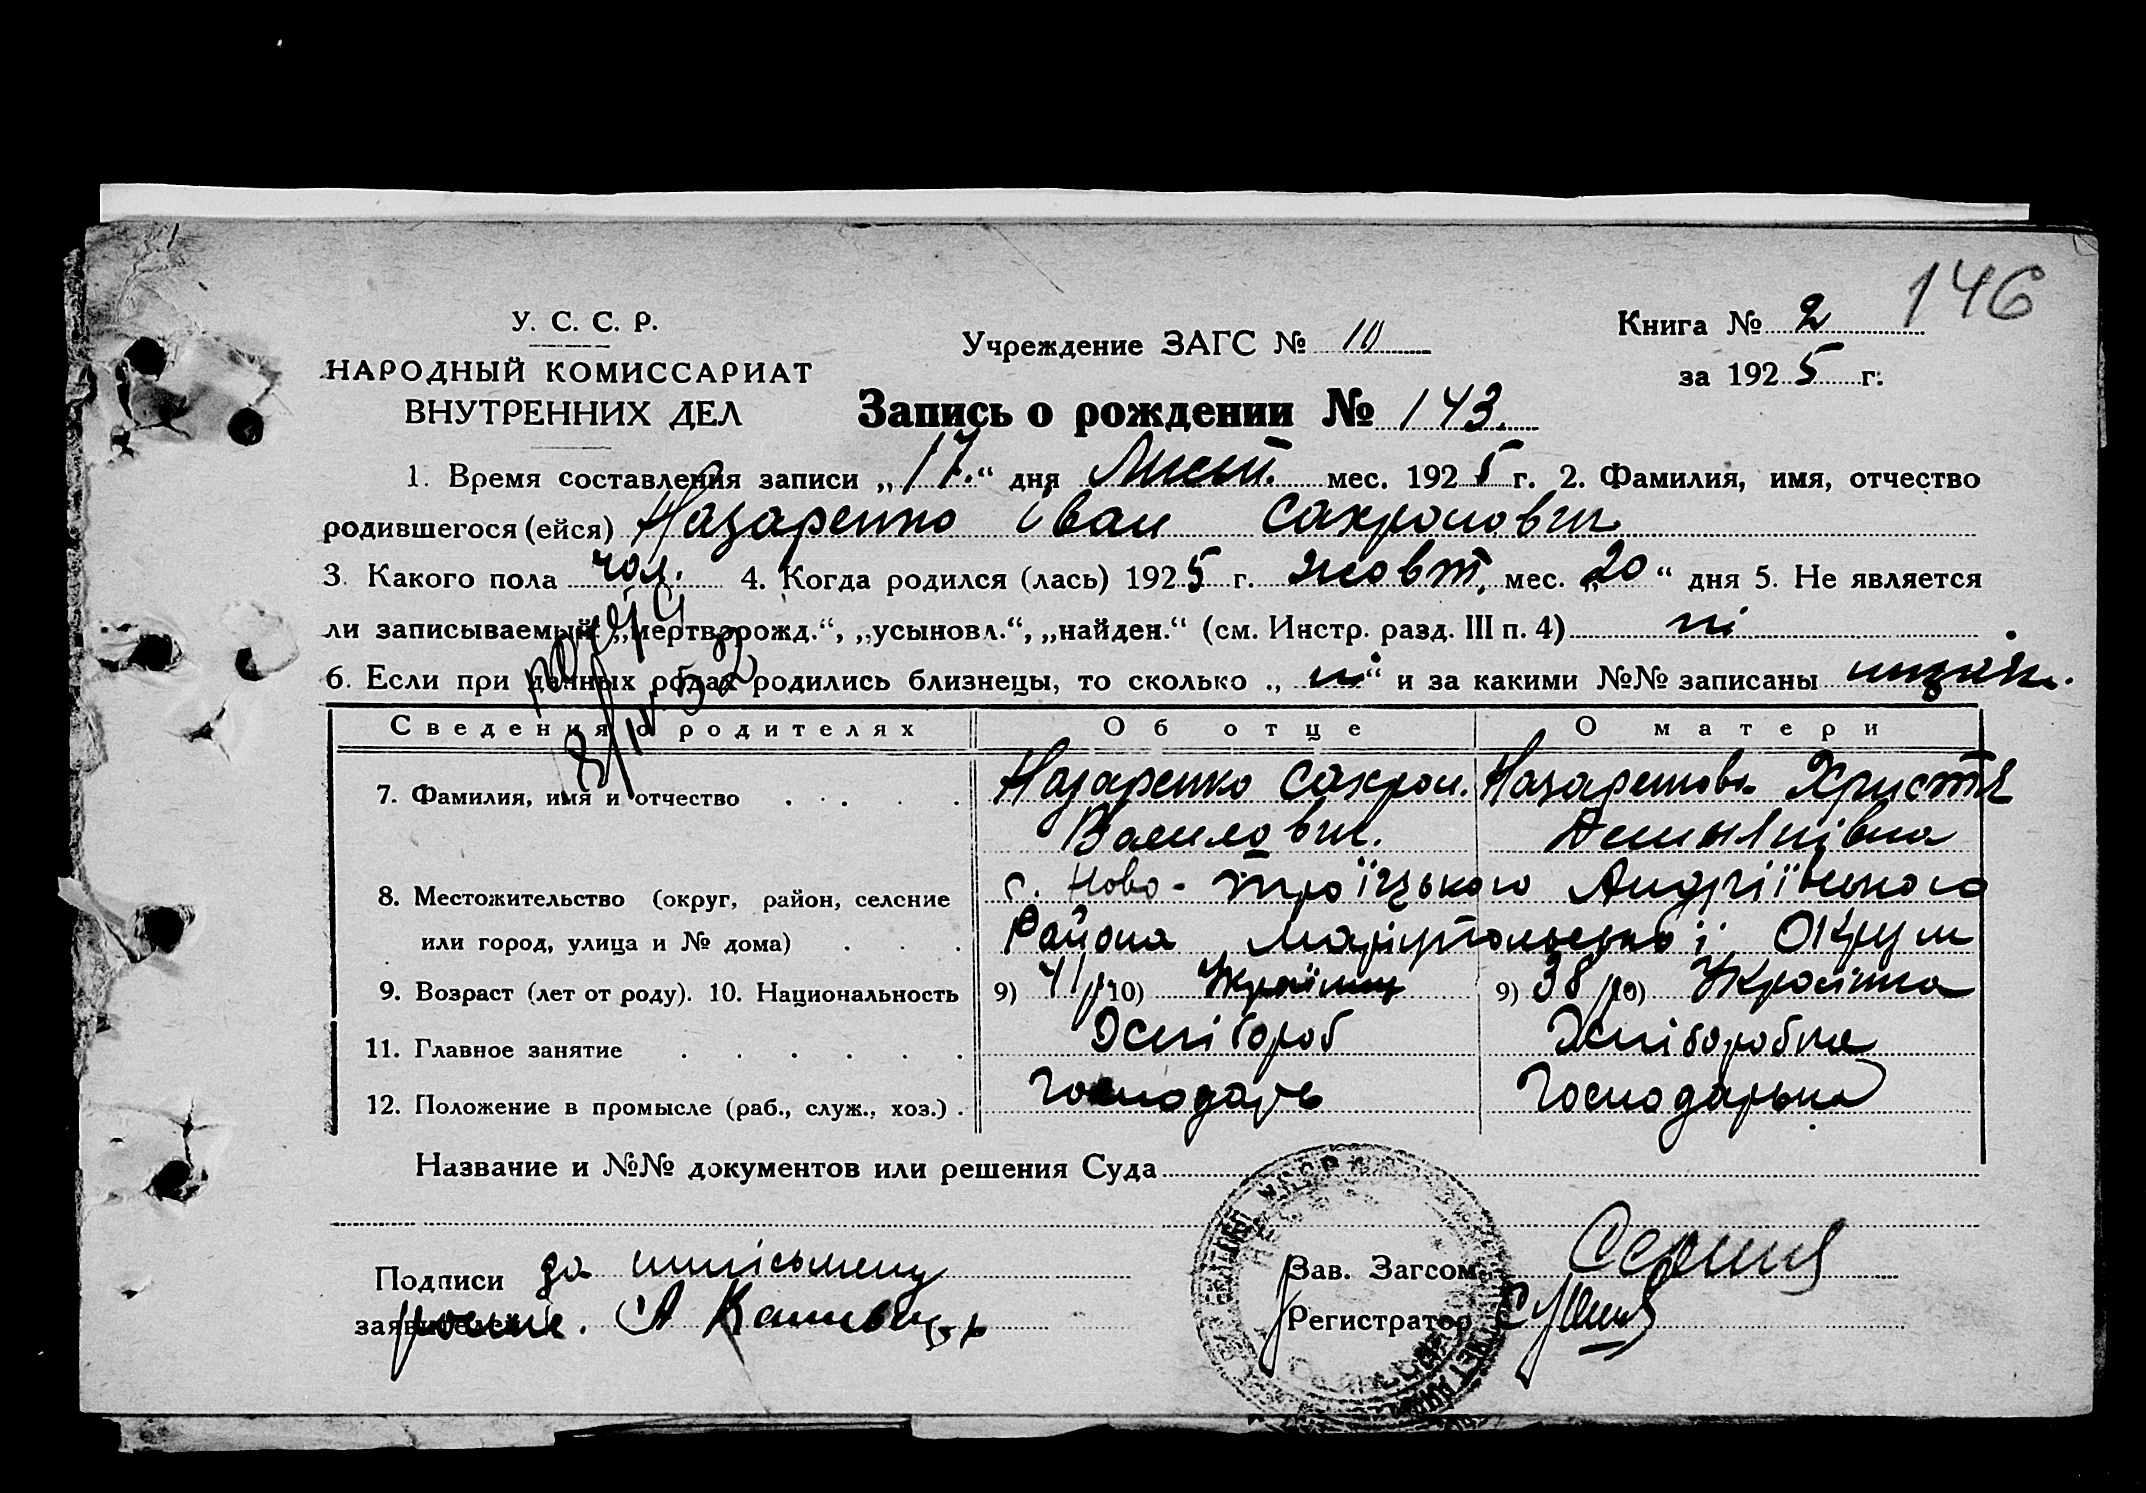 146
У. С. С. Р.
НАРОДНЫЙ КОМИССАРИАТ
ВНУТРЕННИХ ДЕЛ
Учреждение ЗАГС № 10
Книга № 2
за 1925 г.
Запись о рождении № 143.
1. Время составления записи „17.“ дня Лист. мес. 1925 г. 2. Фамилия, имя, отчество
родившегося (ейся) Назаренко Іван Сахронович
3. Какого пола чол. 4. Когда родился (лась) 1925 г. жовт. мес. „20“ дня 5. Не является
ли записываемый „мертворожд.“, „усыновл.“, „найден.“ (см. Инстр. разд. III п. 4) ні .
6. Если при данных родах родились близнецы, то сколько „ ні “ и за какими №№ записаны
8/IV 32
Сведения о родителях Об отце О матери
7. Фамилия, имя и отчество . . . . . Назаренко Сахрон. Назаренкова Христя
Василович. Демянівна
8. Местожительство (округ, район, селение с. Ново-Троїцького Андріївського
или город, улица и № дома) . . . Района Маріупольської Округи
9. Возраст (лет от роду). 10. Национальность 9) 41 р. 10) Українец 9) 38 р. 10) Українка
11. Главное занятие . . . . . . Хлібороб Хліборобка
12. Положение в промысле (раб., служ., хоз.) . Господарь Господарька
Название и №№ документов или решения Суда
Подписи за
заявителей
Зав. Загсом
Регистратор